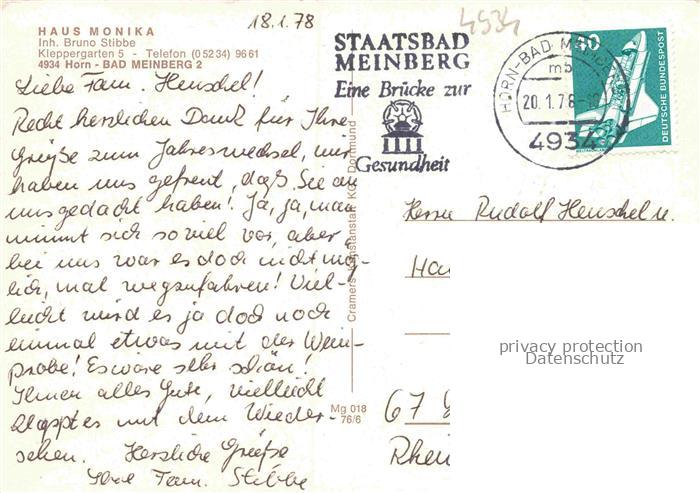 18.1.78
4934
HAUS MONIKA
Inh. Bruno Stibbe
Kleppergarten 5 - Telefon (05234) 9661
4934 Horn - BAD MEINBERG 2
Liebe Fam. Henschel!
Recht herzlichen Dank für Ihre
Grüße zum Jahreswechsel, wir
haben uns gefreut, daß Sie an
uns gedacht haben! Ja, ja, man
nimmt sich so viel vor, aber
bei uns war es doch nicht mög-
lich, mal wegzufahren! Viel-
leicht wird es ja doch noch
einmal etwas mit der Wein-
probe! Es wäre sehr schön!
Ihnen alles Gute, vielleicht
klappt es mit dem Wieder-
sehen. Herzliche Grüße
Ihre Fam. Stibbe
Cramers Kunstanstalt KG, Dortmund
Mg 018
76/6
STAATSBAD
MEINBERG
Eine Brücke zur
Gesundheit
HORN-BAD
mb
20.1.78
4934
DEUTSCHE BUNDESPOST
Herrn Rudolf Henschel u.
67
Rhei
privacy protection
Datenschutz